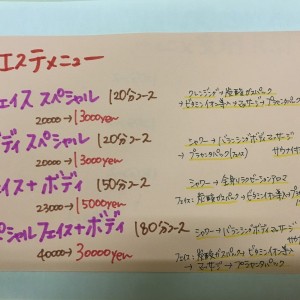 エステメニュー
ェイス スペシャル 120分コース
20000→13000yen
クレンジング→炭酸ガスパック
→ビタミンイオン導入→マッサージ→プラセンタパック
ディ スペシャル 120分コース
20000→13000yen
シャワー→バランシングボディマッサージ
→プラセンタパック(フェイス)
ェイス+ボディ 150分コース
23000→15000yen
シャワー→全身リラクゼーションアロマ
フェイス:炭酸ガスパック→ビタミンイオン導入
ペシャルフェイス+ボディ 180分コース
40000→30000yen
シャワー→バランシングボディマッサージ
フェイス:炭酸ガスパック→ビタミンイオン導入
→マッサージ→プラセンタパック